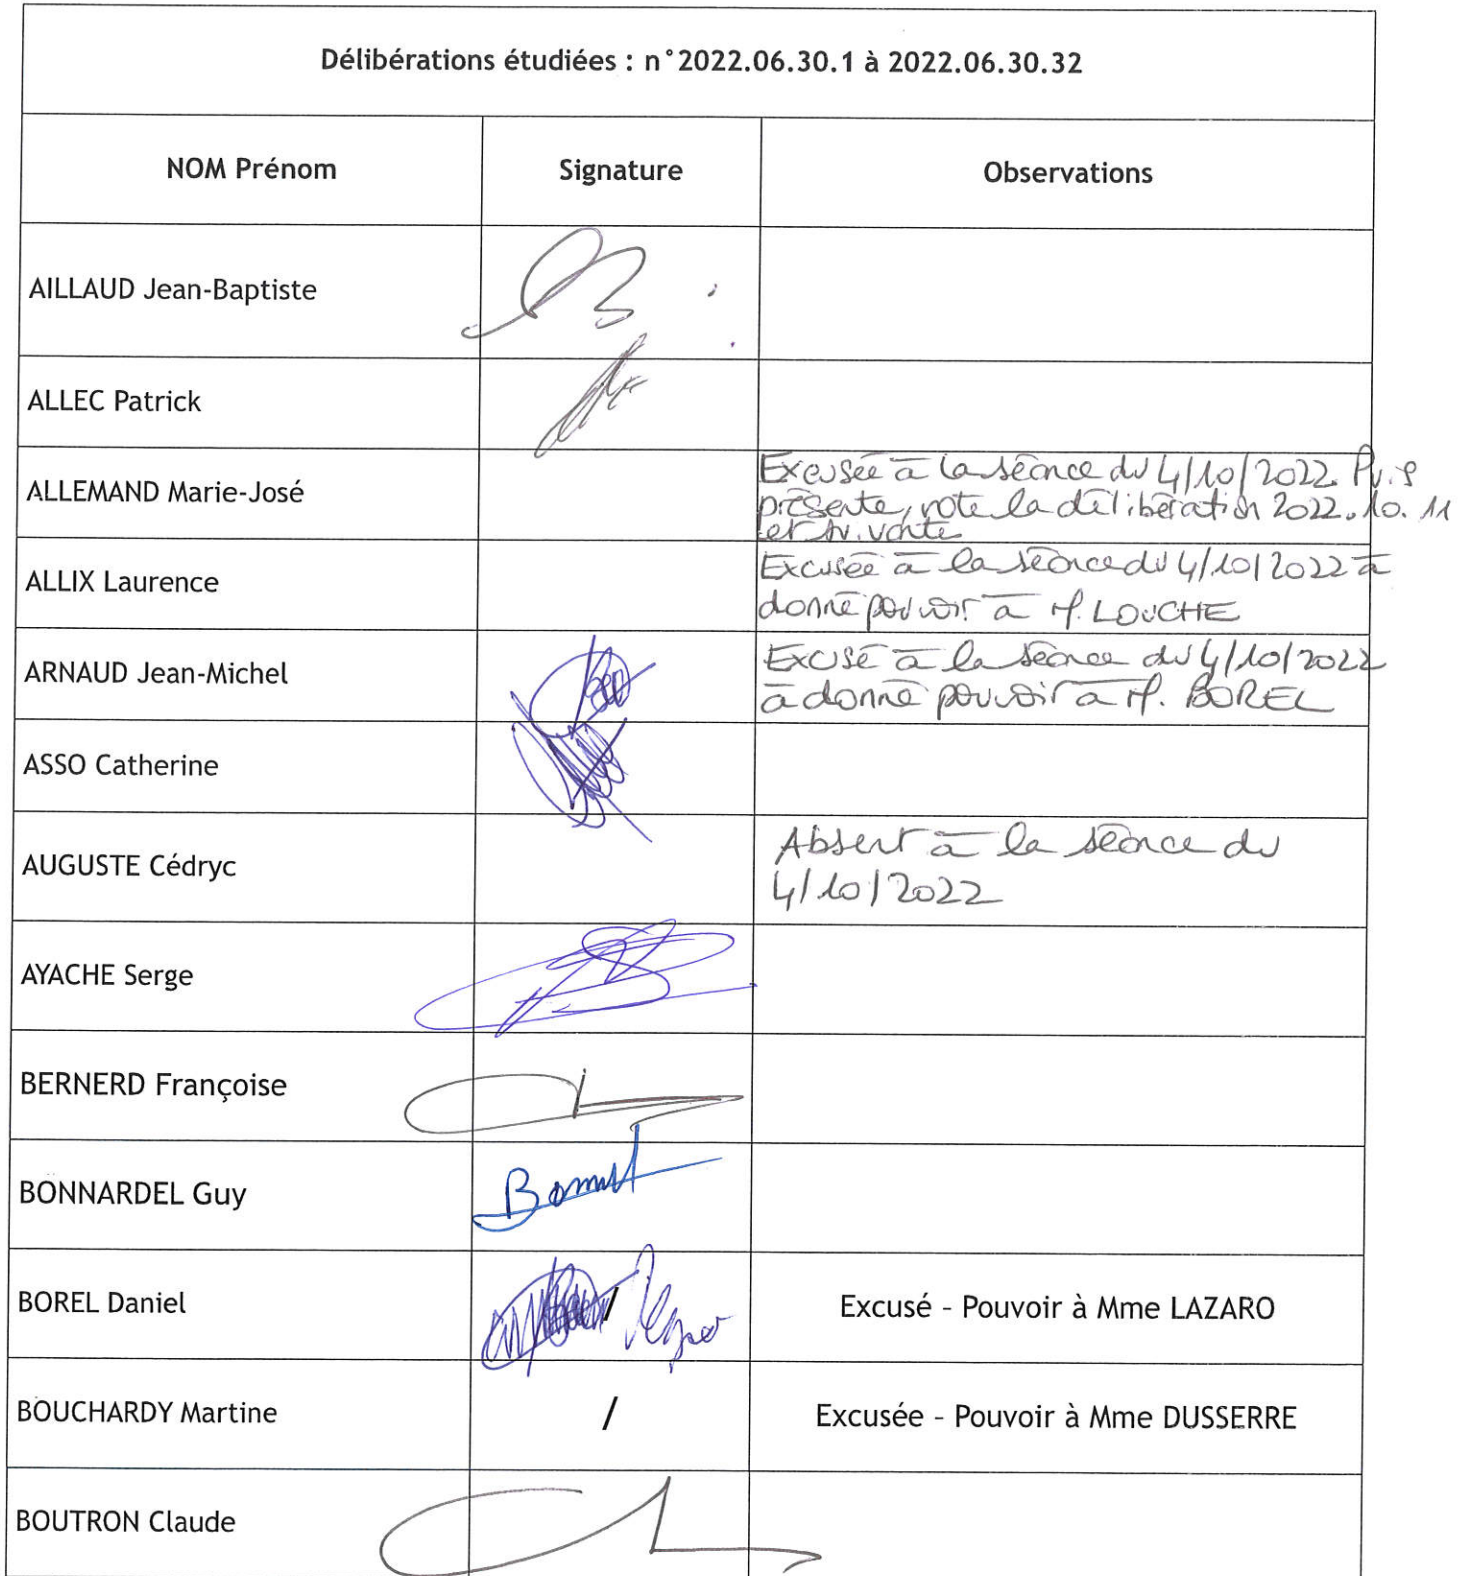 Délibérations étudiées : n°2022.06.30.1 à 2022.06.30.32
NOM Prénom Signature Observations
AILLAUD Jean-Baptiste
ALLEC Patrick
ALLEMAND Marie-José Excusée à la séance du 4/10/2022. Puis
présente, vote la délibération 2022.10.11
et suivante
ALLIX Laurence Excusée à la séance du 4/10/2022 à
donné pouvoir à M. LOUCHE
ARNAUD Jean-Michel Excusé à la séance du 4/10/2022
à donné pouvoir à M. BOREL
ASSO Catherine
AUGUSTE Cédryc Absent à la séance du
4/10/2022
AYACHE Serge
BERNERD Françoise
BONNARDEL Guy
BOREL Daniel / Excusé - Pouvoir à Mme LAZARO
BOUCHARDY Martine / Excusée - Pouvoir à Mme DUSSERRE
BOUTRON Claude